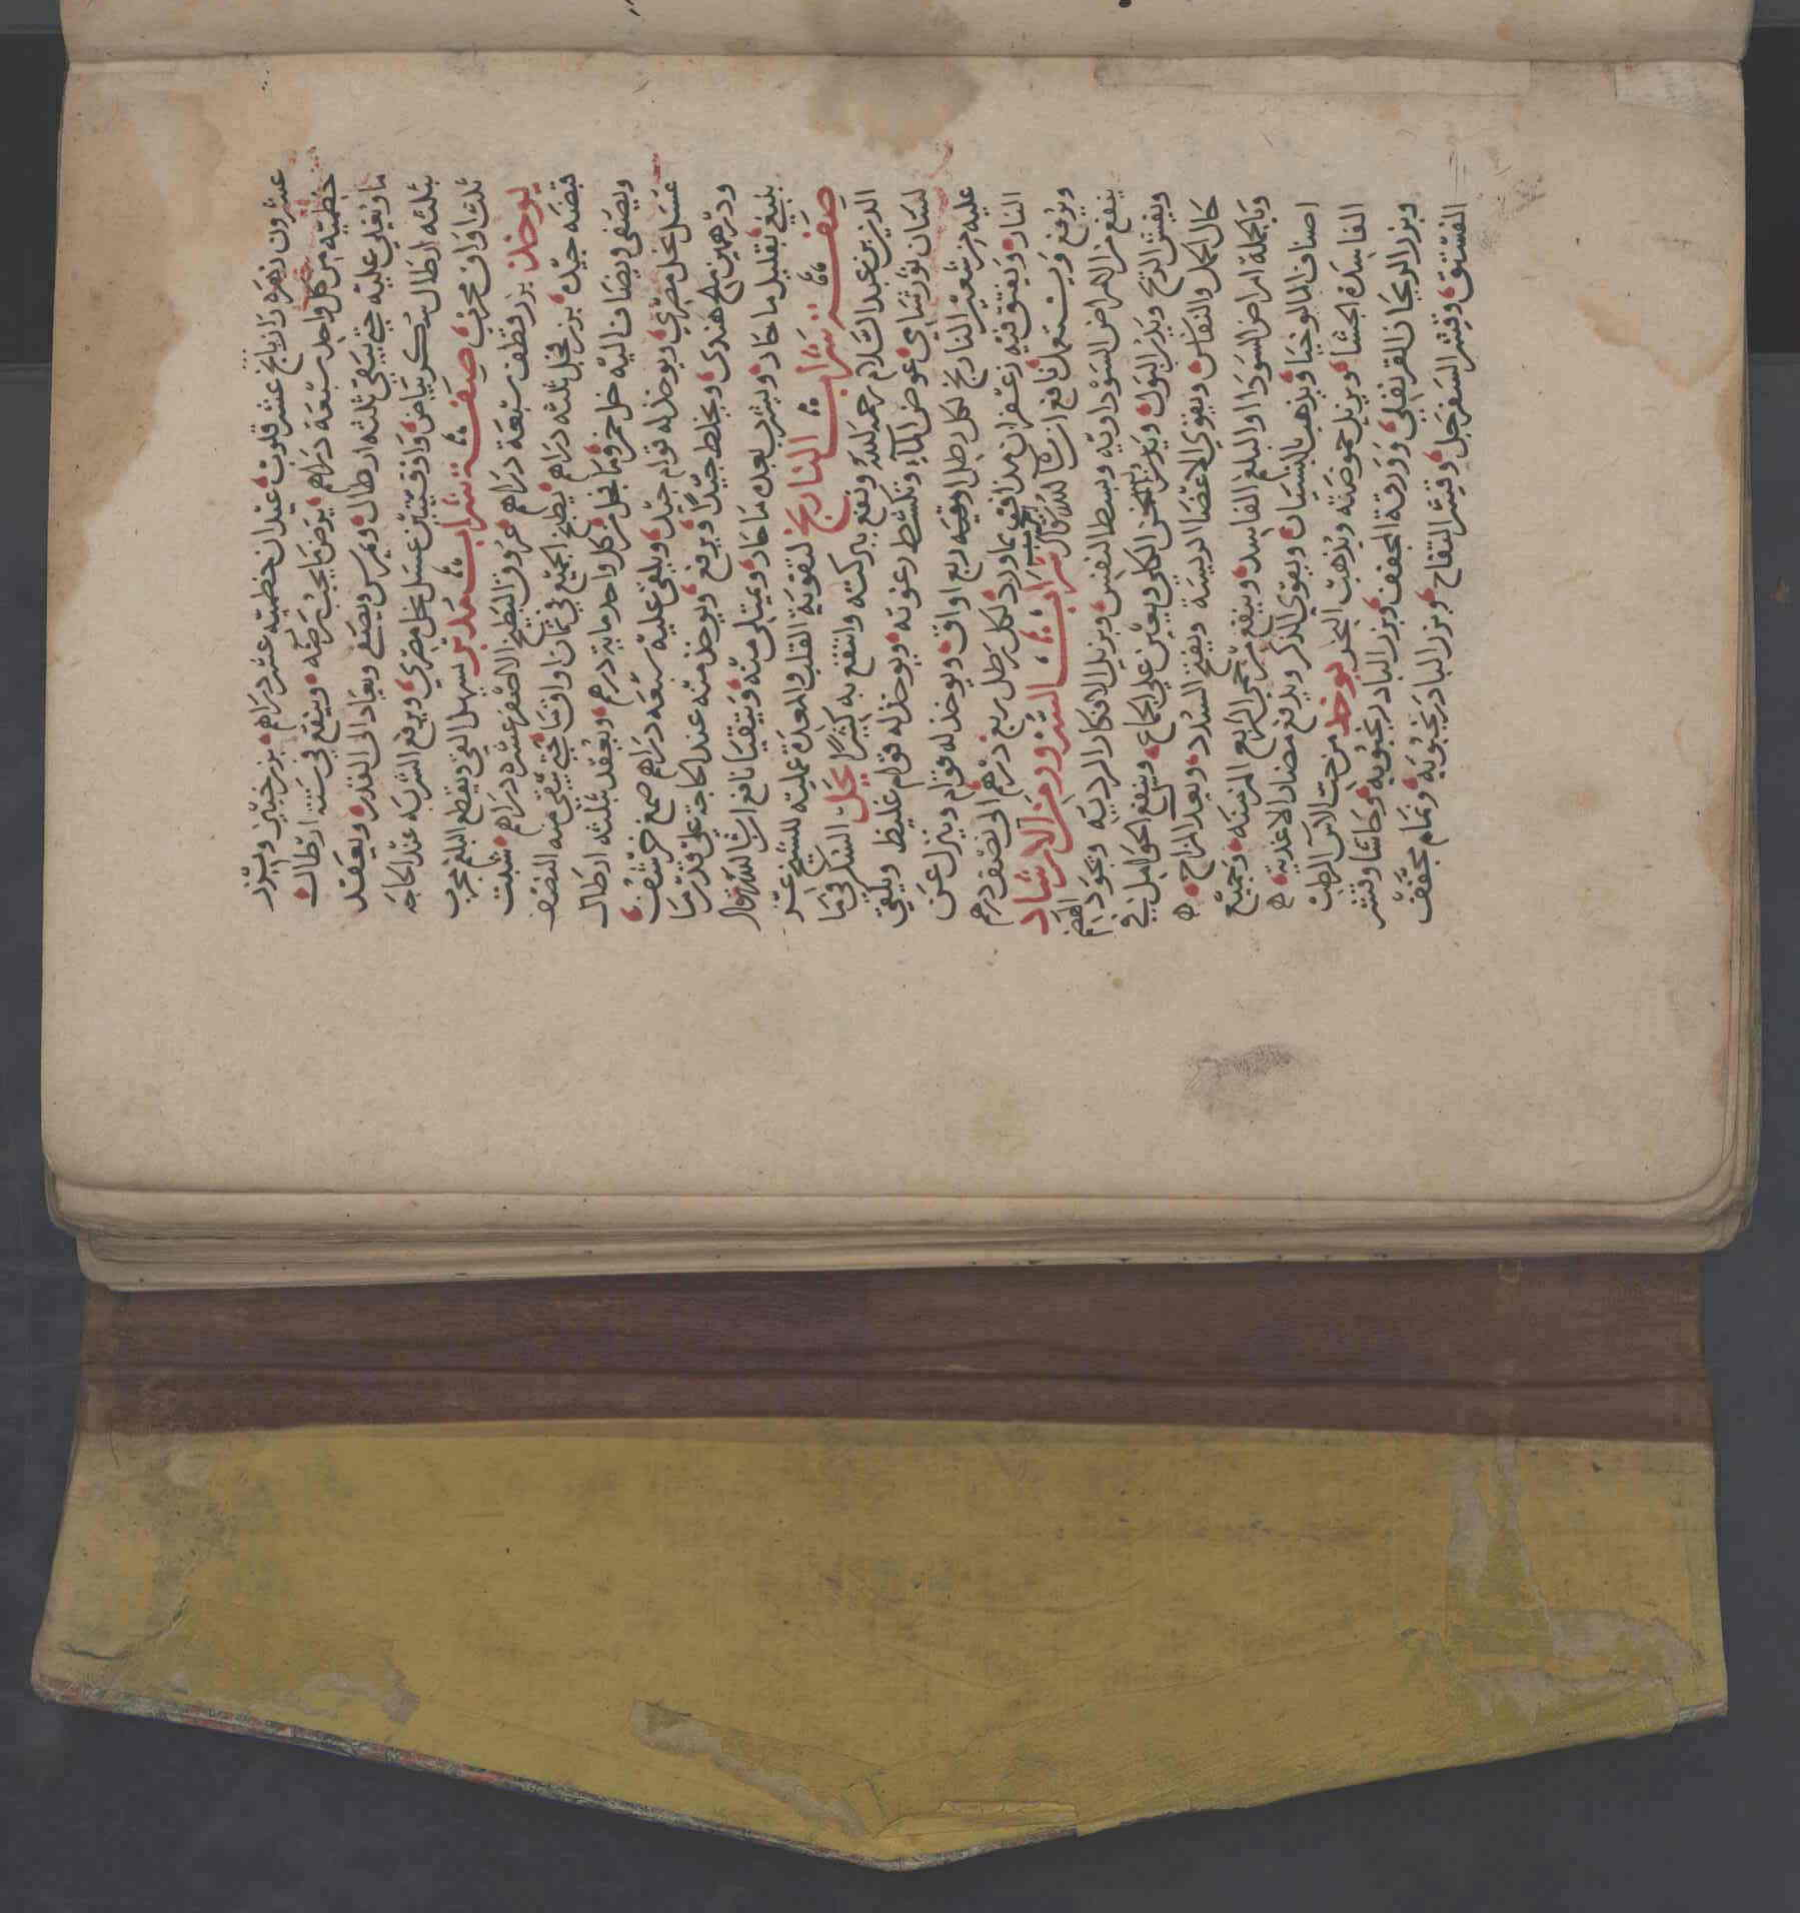 عشرون زهرة رازيانج عشر قلوب عيدان خطميه عشر دراهم بزر خبيز وبزر
خطميه من كل واحد سبعة دراهم يرض ما يجب رضه وينقع في ستة ارطال
ما ويغلي عليه حتي يبقي ثلثه ارطال ويمرس ويصفي ويعاد الى القدر ويعقد
بثلثه ارطال سكر بياض واوقيتين عسل نحل مصري ويرفع الشربه عند الحاجه
ثلث اواق مجرب صفة شراب مدبر يسهل القي ويقطع البلغم مجرب
يوخذ بزر قطف سبعة دراهم عروق البطيخ الاصفر عشرة دراهم شبت
قبضه جيده بزر فجل ثلثه دراهم يطبخ الجميع في ثمان اواق ما حتي يبقي منه النصف
ويصفي ويضاف اليه خل خمر وما فجل من كل واحد ماية درهم ويعقد بثلثه ارطال
عسل نحل مصري ويوخذ له قوام جيد ويلقي عليه سبعه دراهم صمغ خرشف
ودرهمين ملح هندي ويخلط جيدا ويرفع ويوخذ منه عند الحاجة علي قدر ما
ينبغي بقليل ما حار ويشرب بعده ما حار ويمتلي منه ويتقيا نافع ان شا الله تعالى
صفة شراب النارنج لتقوية القلب والمعدة عمليته للشيخ عز
الدين بن عبد السلام رحمه الله ونفع ببركته وانتفع به كثيرا يحل السكر في ما
لسان ثور شامي عوض الماء وتكشط رغوته ويوخذ له قوام غليظ ويلقي
عليه من شعير النارنج لكل رطل اوقيه ربع اواق ويوخذ له قوام وينزل عن
النار ويفتق فيه زعفران مداف بماورد لكل رطل ربع درهم الى نصف درهم
ويرفع ويستعمل نافع ان شا الله تعالى شراب السرور من الارشاد
ينفع من الامراض السوداويه ويبسط النفس ويزيل الافكار الرديه ويجود الهضم
ويفش الريح ويدر البول ويسخن الكلي ويعين علي الجماع وينفع الحوامل في
حال الحمل والنفاس ويقوي الاعضا الرييسة ويفتح السدد ويعدل المزاج ه
وبالجملة امراض السودا والبلغم الفاسد وينفع من حمي الربع المزمنه وجميع
اصناف المالوخيا ويذهب بالنسيان ويقوي الذكر ويدفع مضار الاغذية ه
الفاسدة الجشا ويزيل حموضته ويذهب البخر يوخذ من حب الاس الرطب
وبزر الريحان القرنفلي وورقة المجفف وبزر البادرنجبويه وحاشا وقشر
الفستق وقشر السفرجل وقشر التفاح وبزر البادرنجبويه ونمام مجفف